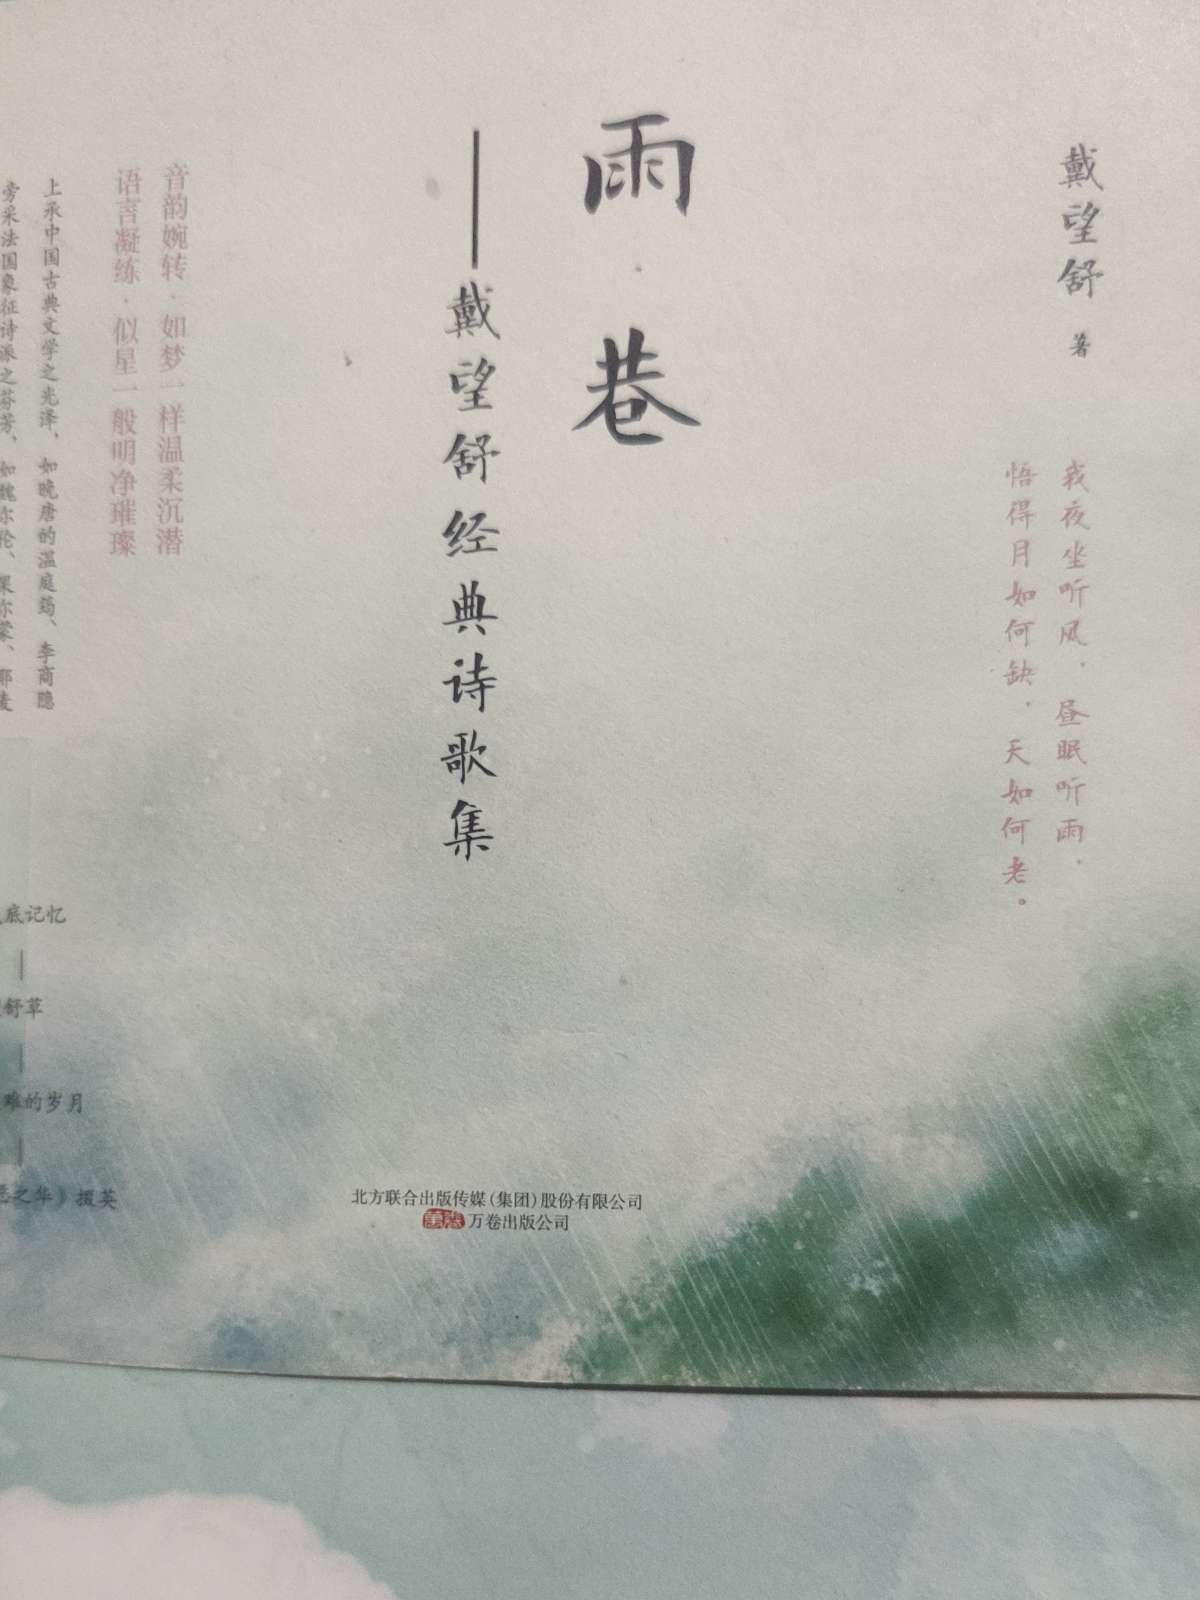 戴望舒 著
我夜坐听风，昼眠听雨，
悟得月如何缺，天如何老。
雨巷
——戴望舒经典诗歌集
音韵婉转，如梦一样温柔沉潜
语言凝练，似星一般明净璀璨
上承中国古典文学之光泽，如晚唐的温庭筠、李商隐
旁采法国象征诗派之芬芳，如魏尔伦、果尔蒙、耶麦
底记忆
舒草
难的岁月
之华》掇英
北方联合出版传媒（集团）股份有限公司
万卷出版公司